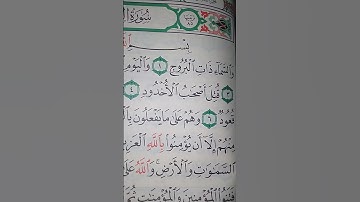 سُورَةُ
بِسْمِ
وَالسَّمَآءِ ذَاتِ الْبُرُوجِ ١ وَالْيَوْمِ
٣ قُتِلَ أَصْحَٰبُ الْأُخْدُودِ ٤
قُعُودٌ ٦ وَهُمْ عَلَىٰ مَا يَفْعَلُونَ
مِنْهُمْ إِلَّآ أَن يُؤْمِنُوا۟ بِاللَّهِ
السَّمَٰوَٰتِ وَالْأَرْضِ ۚ وَاللَّهُ
فَتَنُوا۟ الْمُؤْمِنِينَ وَالْمُؤْمِنَٰتِ ثُمَّ